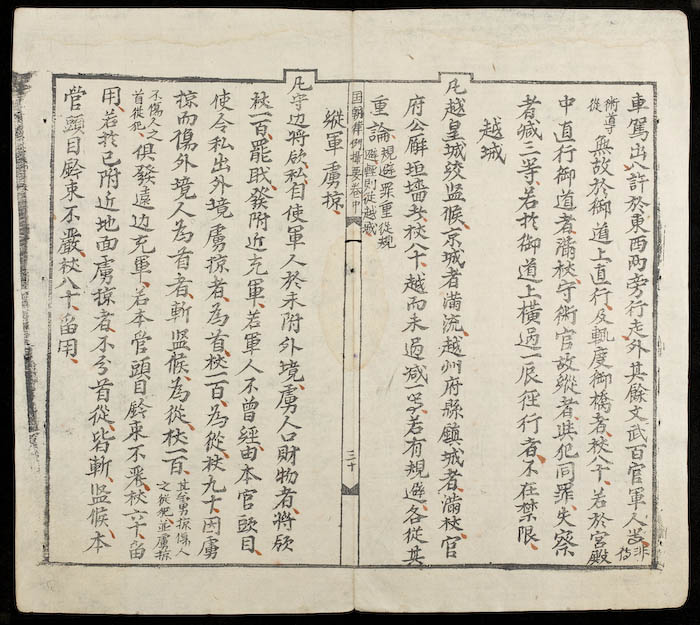 車駕出入許於東西兩旁行走外其餘文武百官軍人等非侍
衛導從無故於御道上直行及輒度御橋者杖八十若於宮殿
中直行御道者滿杖守衛官故縱者與犯同罪失察
者减三等若於御道上橫過一辰徃行者不在禁限
越城
凡越皇城絞監候京城者滿流越州府縣鎮城者滿杖官
府公廨垣墻者杖八十越而未過减一等若有規避各從其
重論規避罪重從規避輕則從越城
国朝律例撮要卷中
三十
縱軍虜掠
凡守边將欲私自使軍人於未附外境虜人口財物者將領
杖一百罷職發附近充軍若軍人不曾經由本官頭目
使令私出外境虜掠者為首杖一百為從杖九十因虜
掠而傷外境人為首者斬監候為從杖一百其掠傷人之從犯並虜掠
不傷人之首從犯俱發遠边充軍若本管頭目鈐束不嚴杖六十畄
用若於已附近地面虜掠者不分首從皆斬監候本
管頭目鈐束不嚴杖八十畄用